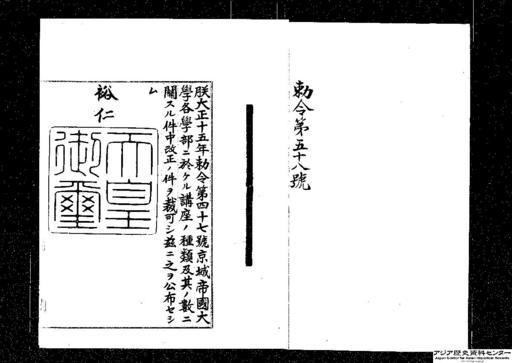 勅令第五十八號
朕大正十五年勅令第四十七號京城帝國大
學各學部ニ於ケル講座ノ種類及其ノ數ニ
關スル件中改正ノ件ヲ裁可シ茲ニ之ヲ公布セシ
ム
裕仁
天皇
御璽
アジア歴史資料センター
Japan Center for Asian Historical Records